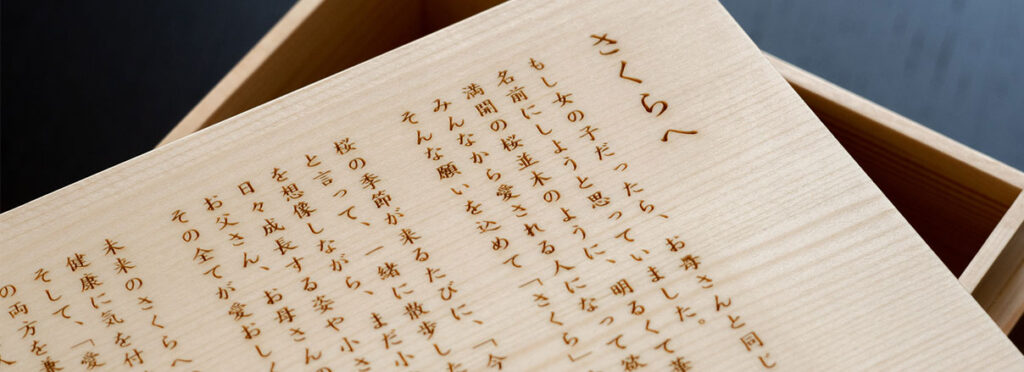 さくらへ
もし女の子だったら、お母さんと同じ
名前にしようと思っていました。
満開の桜並木のように、明るくて華
みんなから愛される人になって欲
そんな願いを込めて「さくら」
桜の季節が来るたびに、「今
と言って、一緒に散歩した
を想像しながら、まだ小
日々成長する姿や小さ
お父さん、お母さんの
その全てが愛おし
未来のさくらへ
健康に気を付
そして、「愛
の両方を兼